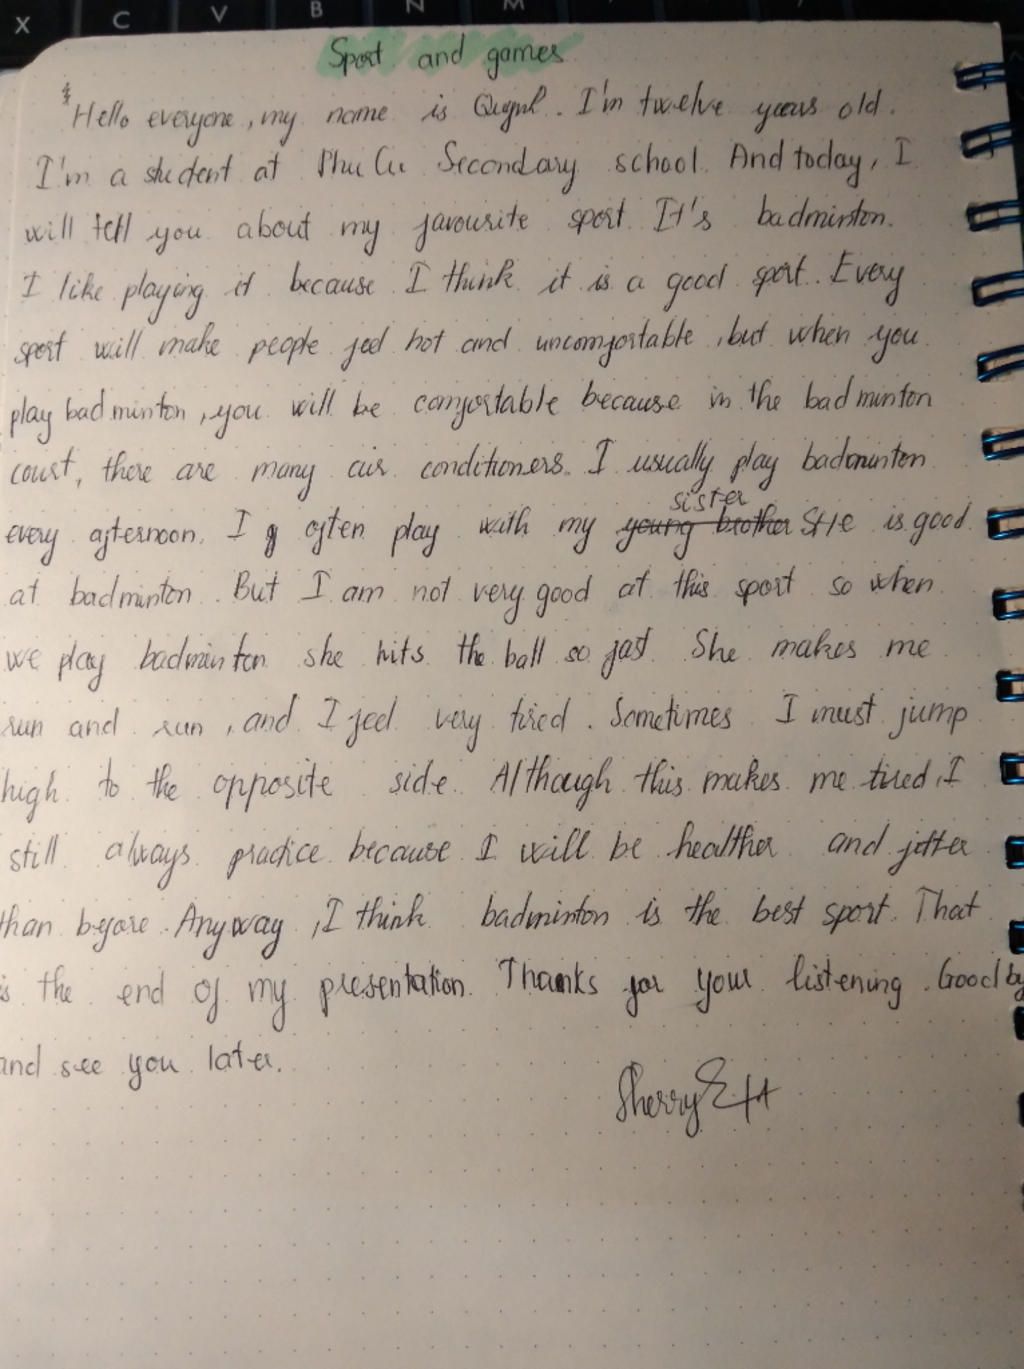 X C V B N M
Sport and games
Hello everyone, my name is Quynh. I'm twelve years old.
I'm a student at Phu Cu Secondary school. And today, I
will tell you about my favourite sport It's badminton.
I like playing it because I think it is a good sport. Every
sport will make people feel hot and uncomfortable, but when you
play badminton, you will be comfortable because in the badminton
court, there are many air conditioners. I usually play badminton
every afternoon. I often play with my young brother sister SHe is good
at badminton. But I am not very good at this sport so when
we play badminton she hits the ball so fast. She makes me
run and run, and I feel very tired. Sometimes I must jump
high to the opposite side. Although this makes me tired, I
still always practice because I will be healther and fitter
than before. Anyway, I think badminton is the best sport. That
is the end of my presentation. Thanks for your listening. Goodby
and see you later.
Sherry